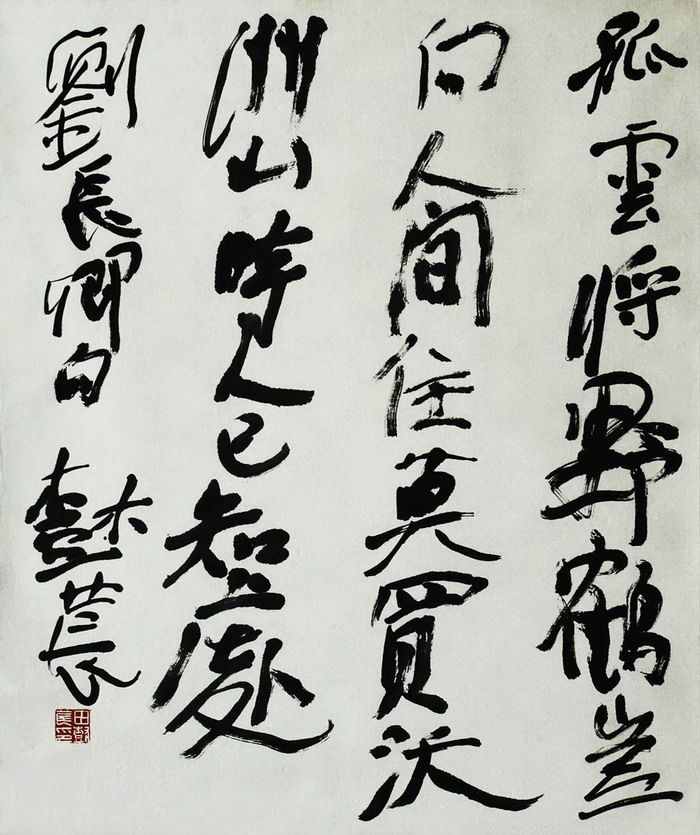 孤雲將野鶴豈
向人間住莫買沃
洲山時人已知處
劉長卿句